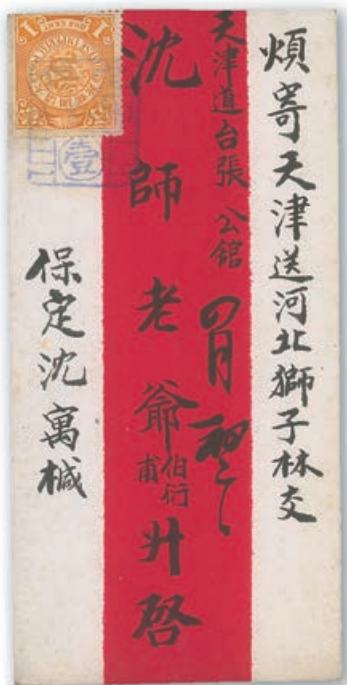 煩寄天津送河北獅子林交
天津道台張公館
沈師老爺伯衍甫升啓
四月初一
保定沈寓椷
壹